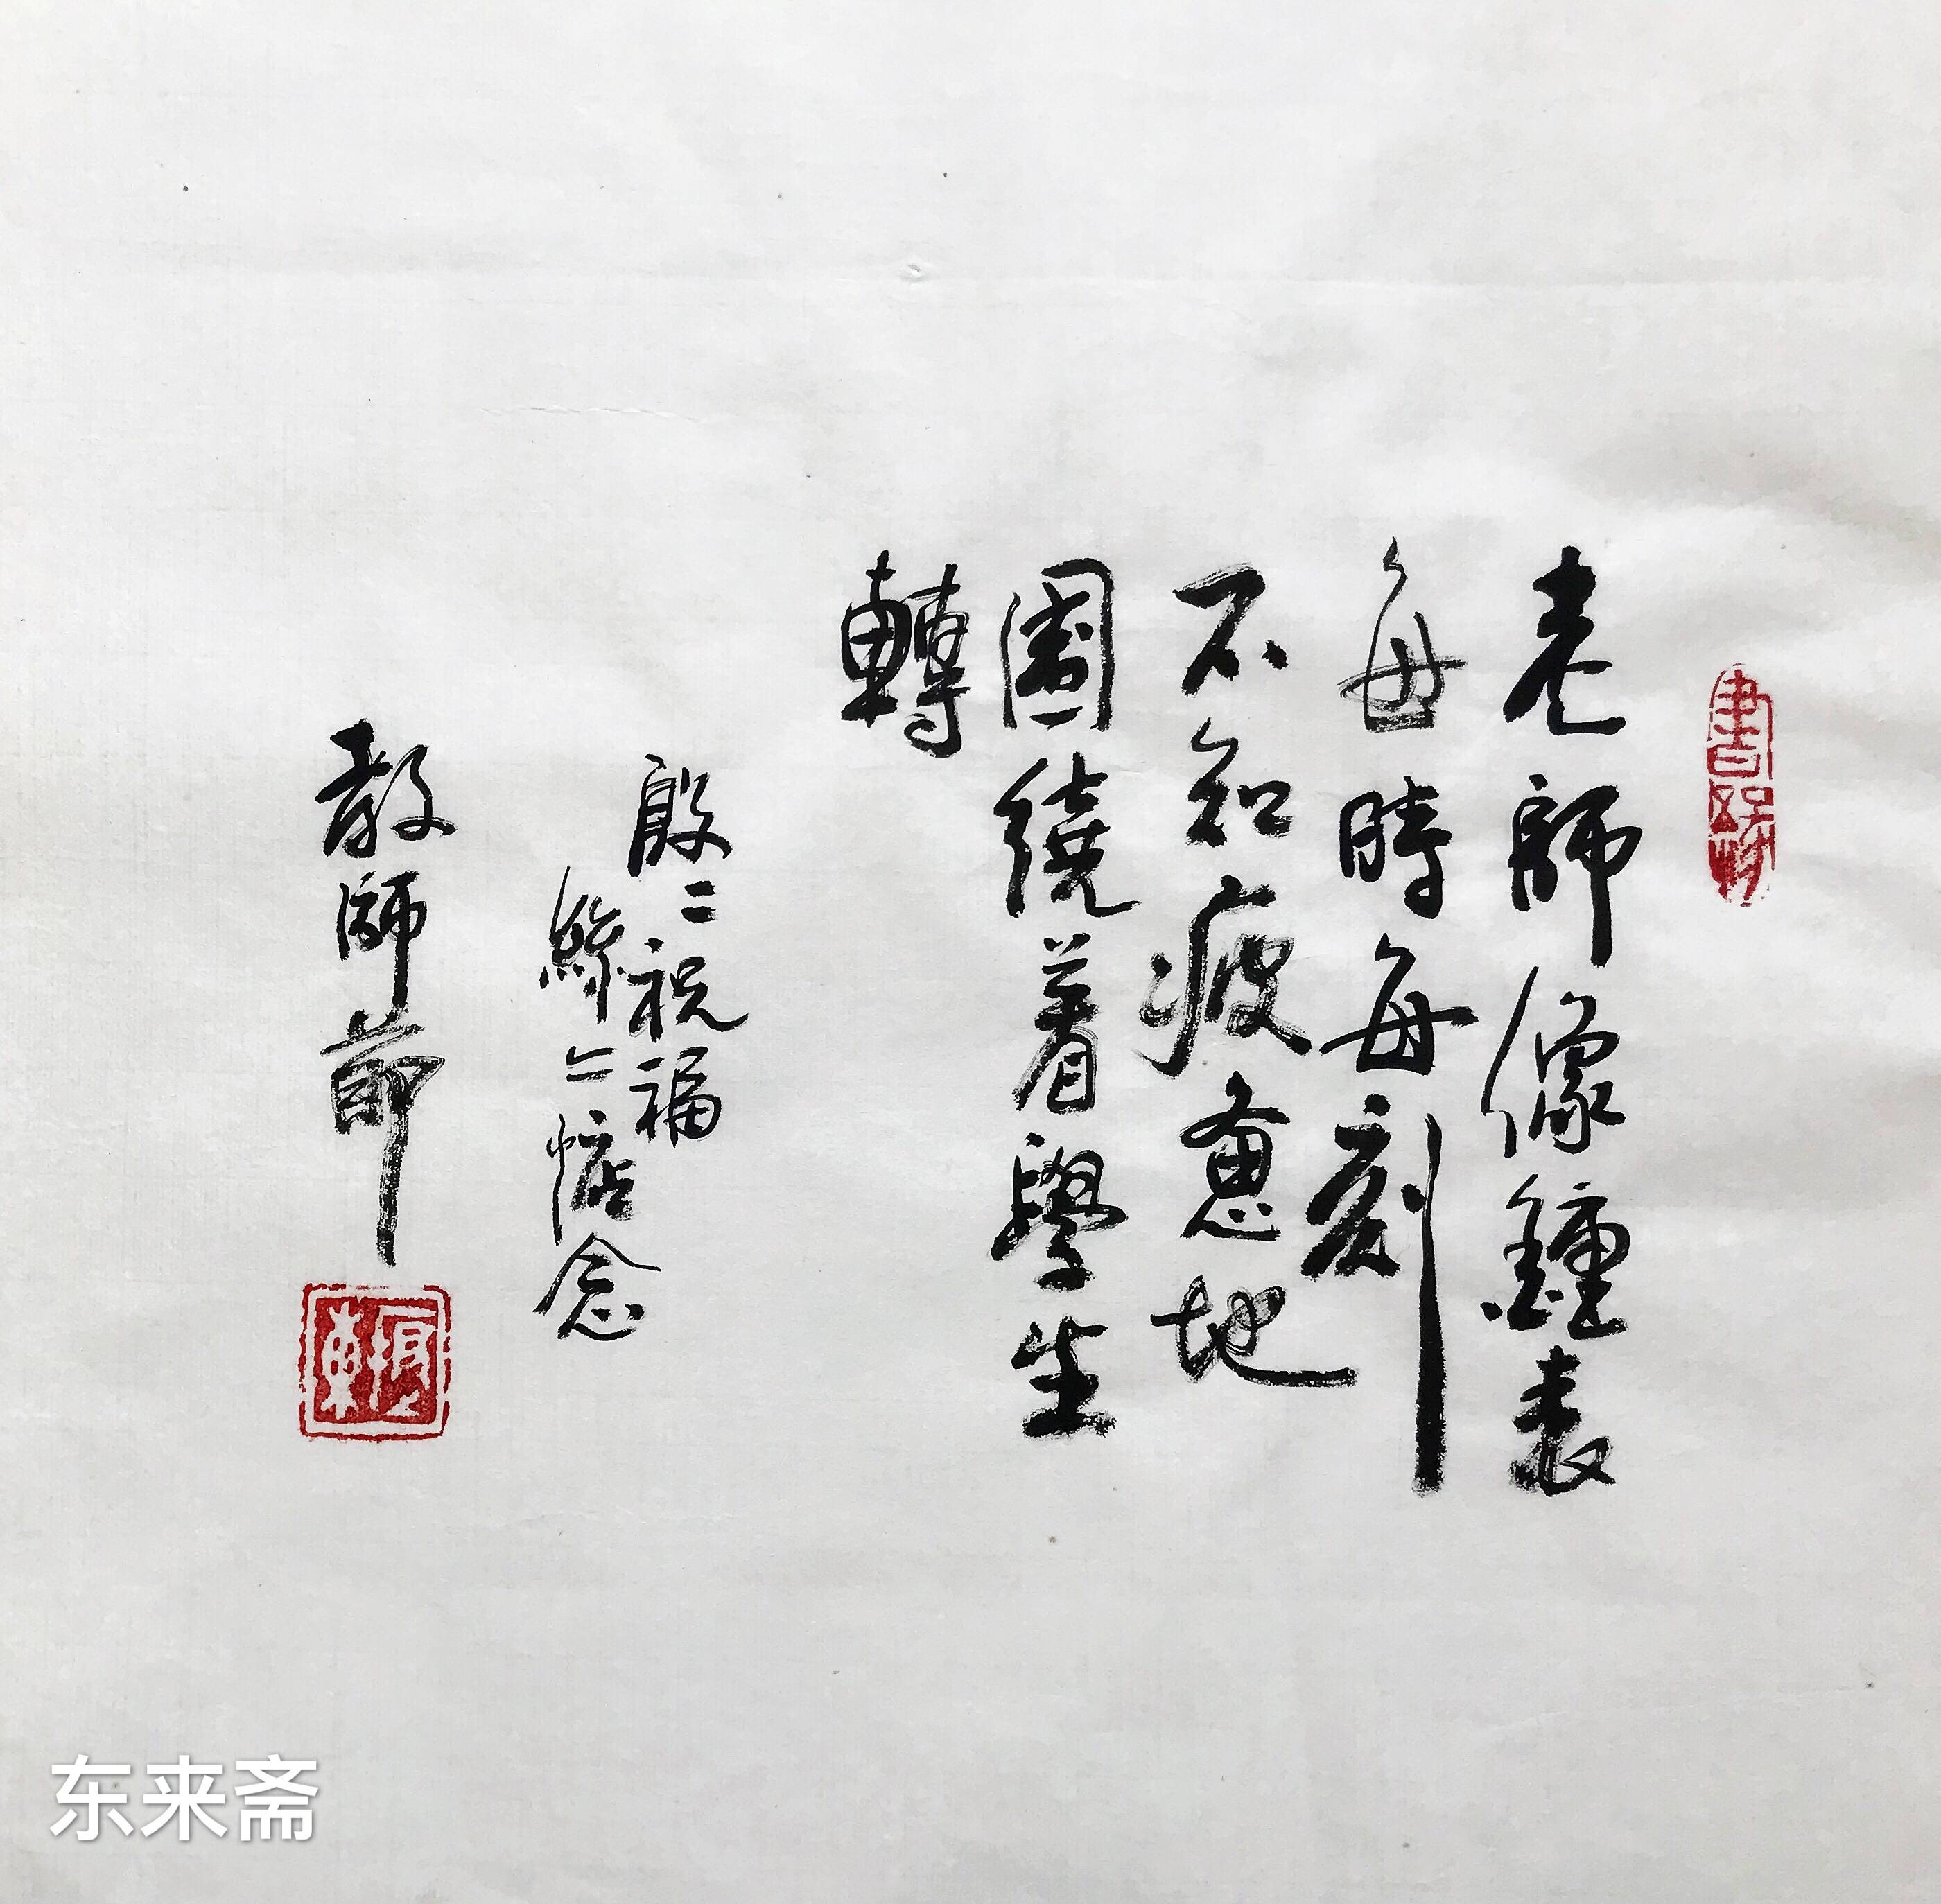 老師像鐘表
每時每刻
不知疲惫地
圍繞着學生
轉
殷二祝福
絲二惦念
教師節
东来斋